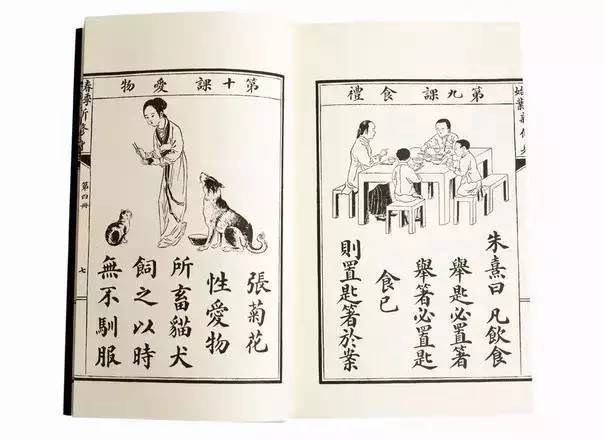 第九課 食禮
朱熹曰 凡飲食
舉匙必置箸
舉箸必置匙
食已
則置匙箸於案
第十課 愛物
張菊花
性愛物
所畜貓犬
飼之以時
無不馴服
第四冊
七